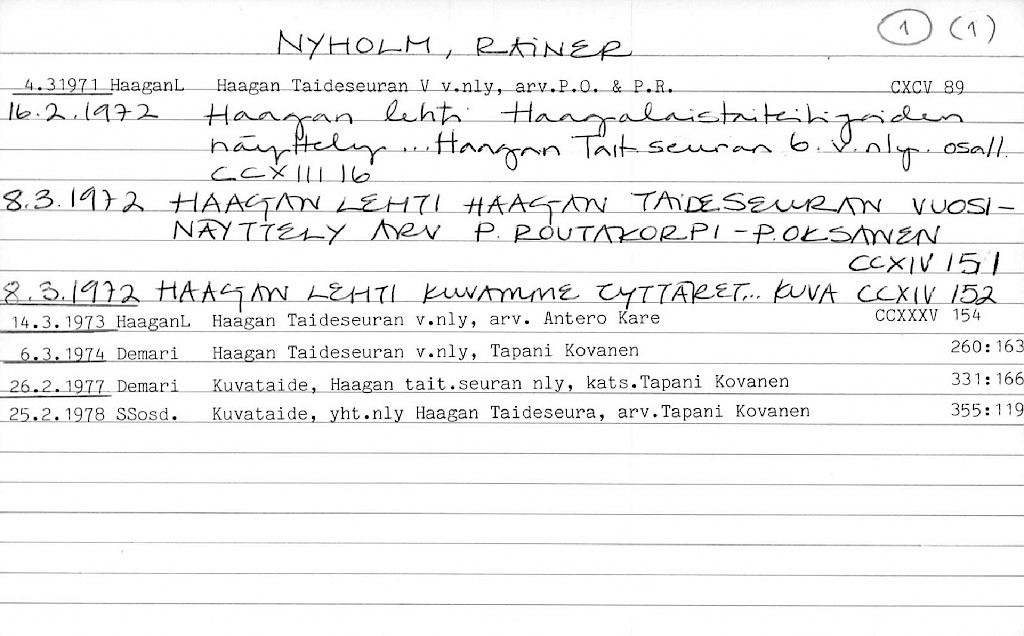 NYHOLM, RAINER
1 (1)
4.31971 HaaganL Haagan Taideseuran V v.nly, arv.P.O. & P.R. CXCV 89
16.2.1972 Haagan lehti Haagalaistaiteilijoiden
näyttely ... Haagan Tait.seuran 6. v.nly. osall.
CCXIII 16
8.3.1972 HAAGAN LEHTI HAAGAN TAIDESEURAN VUOSI-
NÄYTTELY ARV P. ROUTAKORPI - P.OKSANEN
CCXIV 151
8.3.1972 HAAGAN LEHTI KUVAMME TYTTÄRET... KUVA CCXIV 152
14.3.1973 HaaganL Haagan Taideseuran v.nly, arv. Antero Kare CCXXXV 154
6.3.1974 Demari Haagan Taideseuran v.nly, Tapani Kovanen 260:163
26.2.1977 Demari Kuvataide, Haagan tait.seuran nly, kats.Tapani Kovanen 331:166
25.2.1978 SSosd. Kuvataide, yht.nly Haagan Taideseura, arv.Tapani Kovanen 355:119